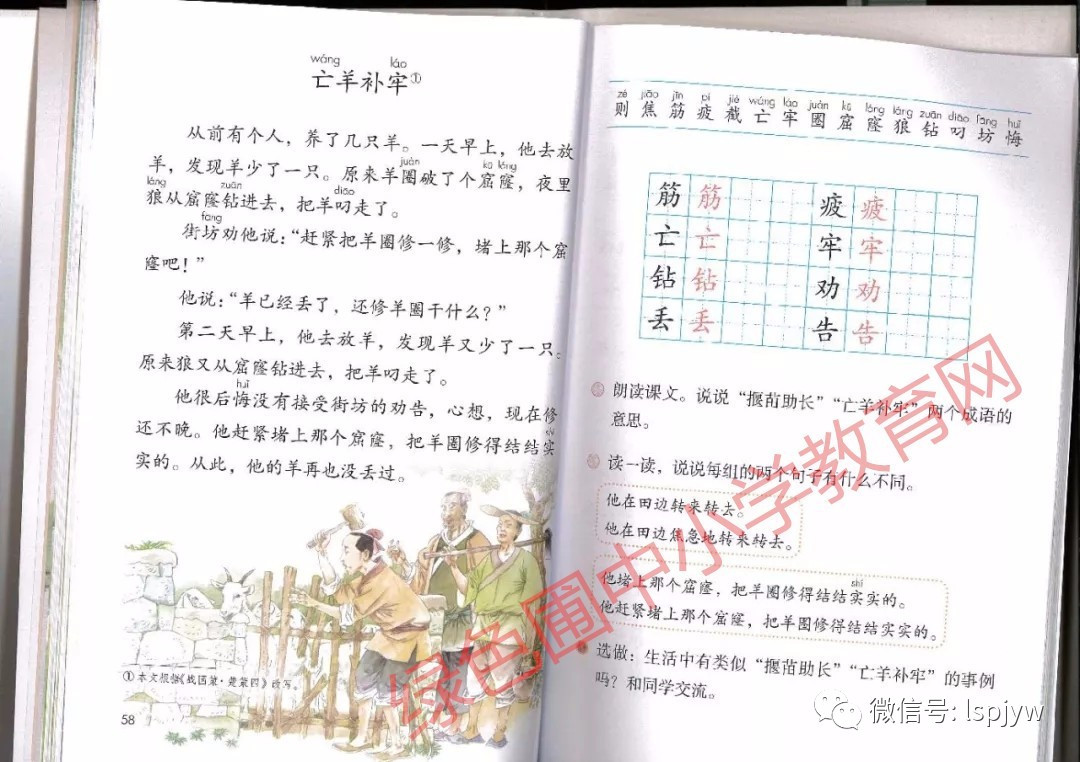 wáng láo
亡羊补牢①
从前有个人，养了几只羊。一天早上，他去放
juàn kū lóng
羊，发现羊少了一只。原来羊圈破了个窟窿，夜里
láng zuān diāo
狼从窟窿钻进去，把羊叼走了。
fang
街坊劝他说：“赶紧把羊圈修一修，堵上那个窟
窿吧！”
他说：“羊已经丢了，还修羊圈干什么？”
第二天早上，他去放羊，发现羊又少了一只。
原来狼又从窟窿钻进去，把羊叼走了。
huǐ
他很后悔没有接受街坊的劝告，心想，现在修
还不晚。他赶紧堵上那个窟窿，把羊圈修得结结实
实的。从此，他的羊再也没丢过。
①本文根据《战国策·楚策四》改写。
58
zé jiāo jīn pí jié wáng láo juàn kū lóng láng zuān diāo fang huǐ
则 焦 筋 疲 截 亡 牢 圈 窟 窿 狼 钻 叼 坊 悔
筋 筋 疲 疲
亡 亡 牢 牢
钻 钻 劝 劝
丢 丢 告 告
朗读课文。说说“揠苗助长”“亡羊补牢”两个成语的
意思。
读一读，说说每组的两个句子有什么不同。
他在田边转来转去。
他在田边焦急地转来转去。
shi
他堵上那个窟窿，把羊圈修得结结实实的。
他赶紧堵上那个窟窿，把羊圈修得结结实实的。
选做：生活中有类似“揠苗助长”“亡羊补牢”的事例
吗？和同学交流。
绿色圃中小学教育网
微信号: lspjyw